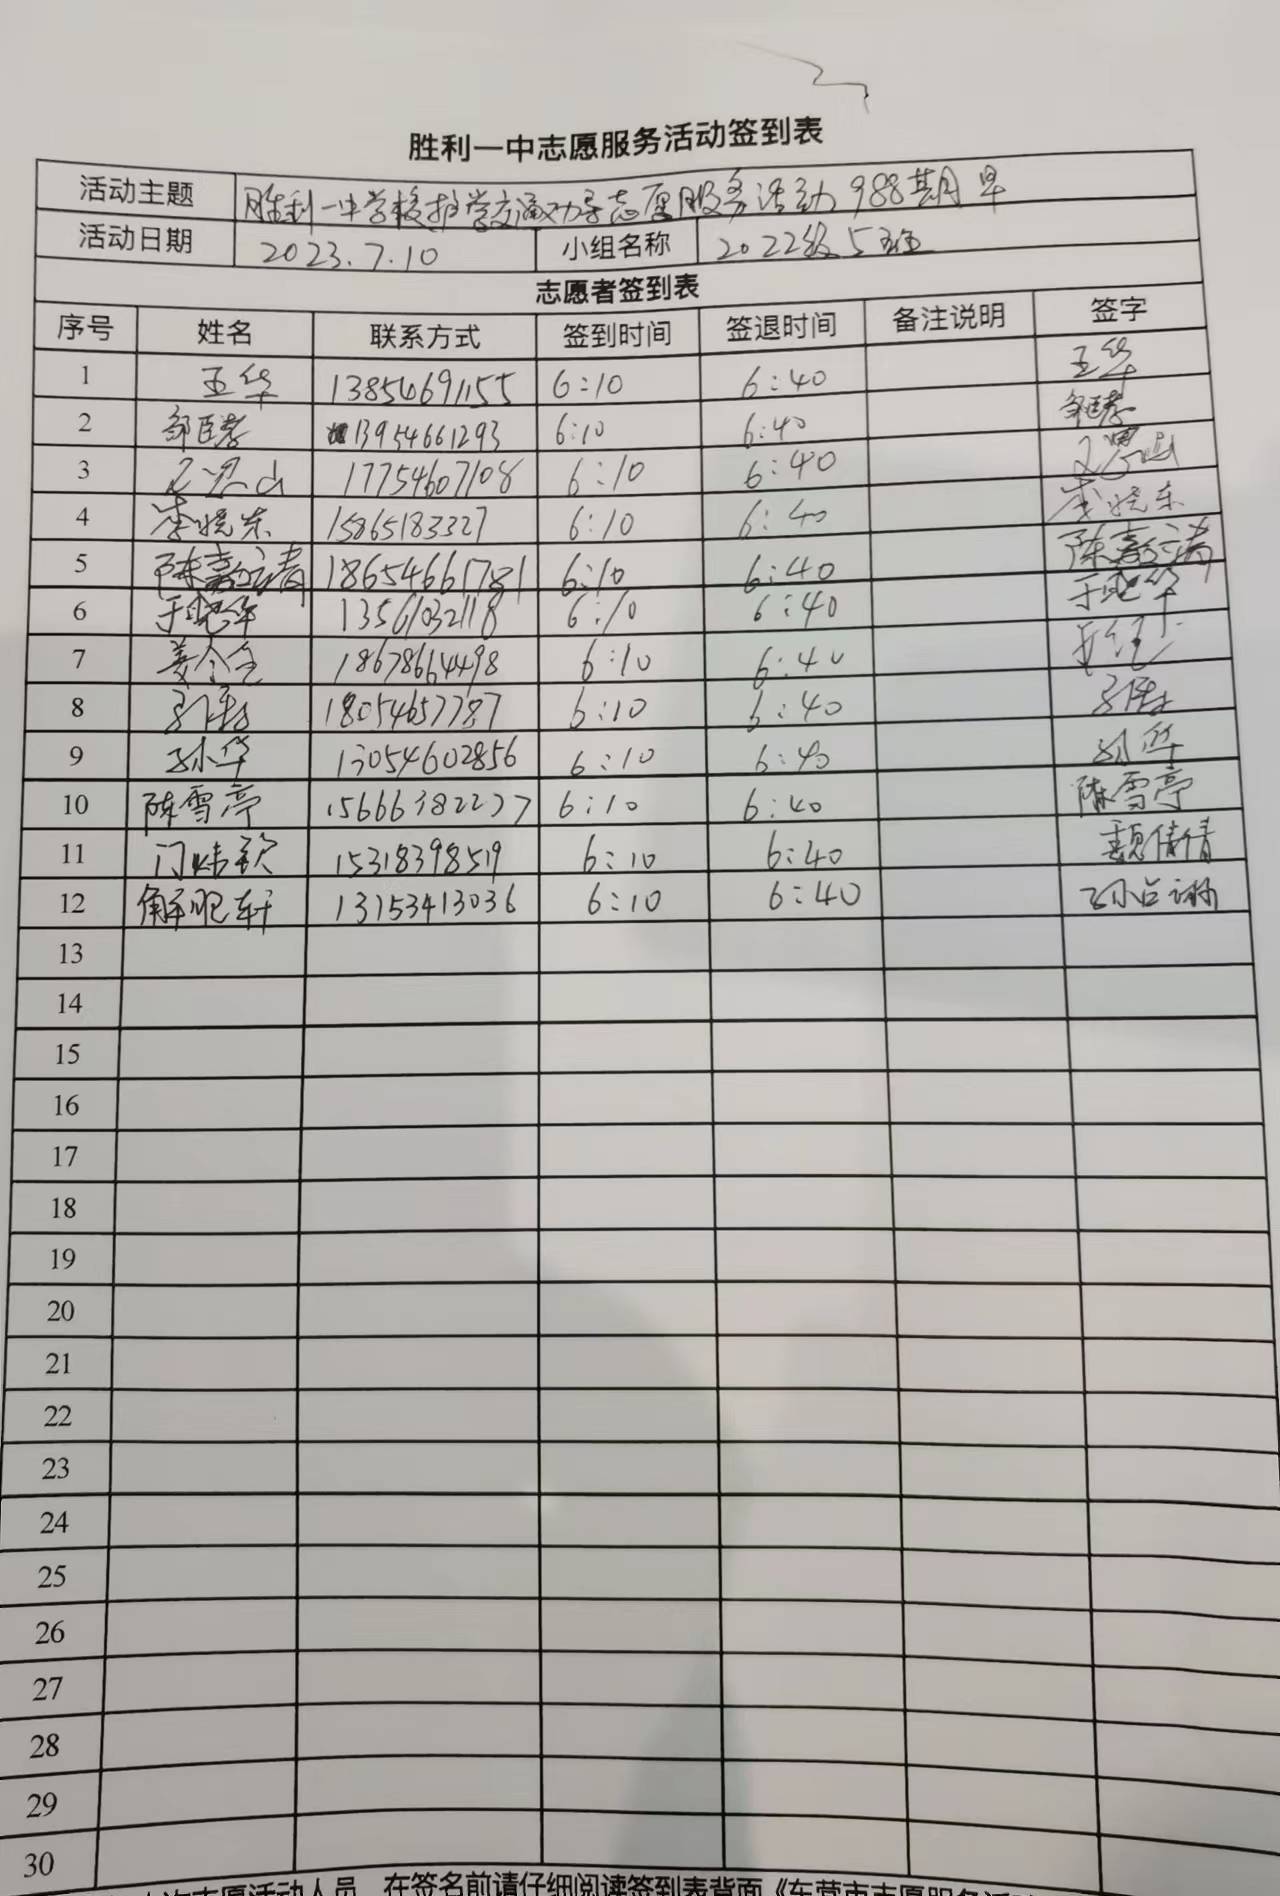 胜利一中志愿服务活动签到表
活动主题 胜利一中学校护学交通劝导志愿服务活动988期早
活动日期 2023.7.10 小组名称 2022级5班
志愿者签到表
序号 姓名 联系方式 签到时间 签退时间 备注说明 签字
1 王华 13854691155 6:10 6:40 王华
2 13954661293 6:10 6:40
3 17754607108 6:10 6:40
4 李晓东 15865183327 6:10 6:40 李晓东
5 18654661781 6:10 6:40
6 于晓华 13561032118 6:10 6:40 于晓华
7 18678664498 6:10 6:40
8 18054657787 6:10 6:40
9 孙华 13054602856 6:10 6:40 孙华
10 陈雪亭 15666382277 6:10 6:40 陈雪亭
11 15318398519 6:10 6:40 倩倩
12 13153413036 6:10 6:40
13
14
15
16
17
18
19
20
21
22
23
24
25
26
27
28
29
30
志愿活动人员，在签名前请仔细阅读签到表背面《东营市志愿服务活